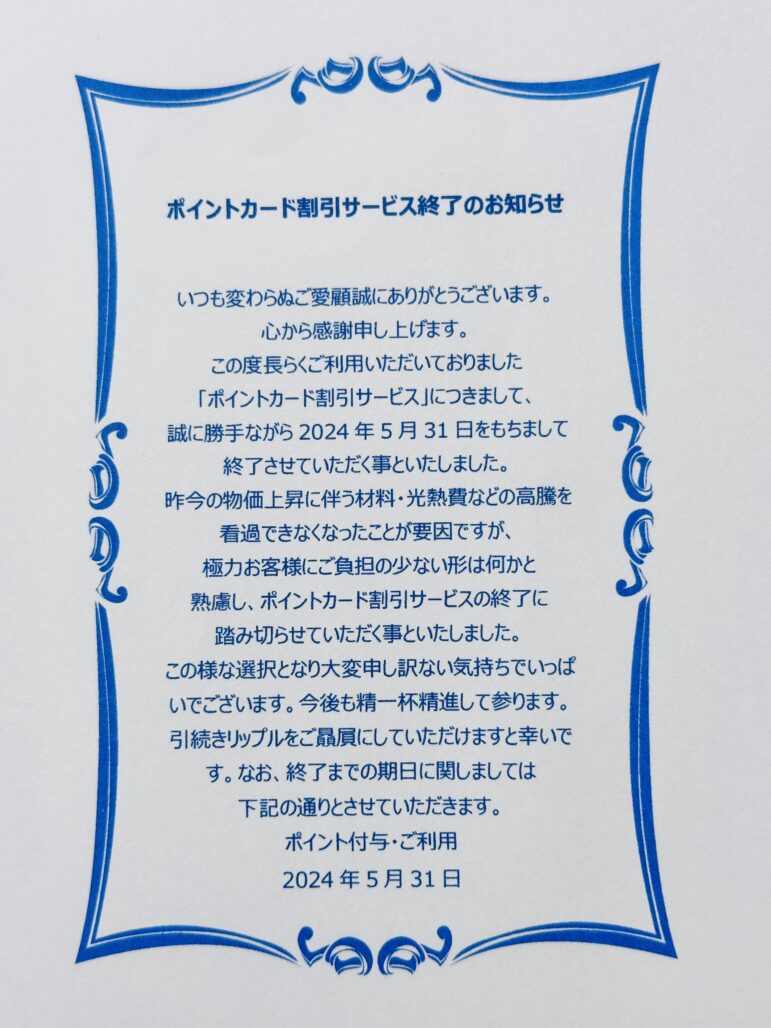 ポイントカード割引サービス終了のお知らせ
いつも変わらぬご愛顧誠にありがとうございます。
心から感謝申し上げます。
この度長らくご利用いただいておりました
「ポイントカード割引サービス」につきまして、
誠に勝手ながら 2024 年 5 月 31 日をもちまして
終了させていただく事といたしました。
昨今の物価上昇に伴う材料・光熱費などの高騰を
看過できなくなったことが要因ですが、
極力お客様にご負担の少ない形は何かと
熟慮し、ポイントカード割引サービスの終了に
踏み切らせていただく事といたしました。
この様な選択となり大変申し訳ない気持ちでいっぱ
いでございます。今後も精一杯精進して参ります。
引続きリップルをご贔屓にしていただけますと幸いで
す。なお、終了までの期日に関しましては
下記の通りとさせていただきます。
ポイント付与・ご利用
2024 年 5 月 31 日